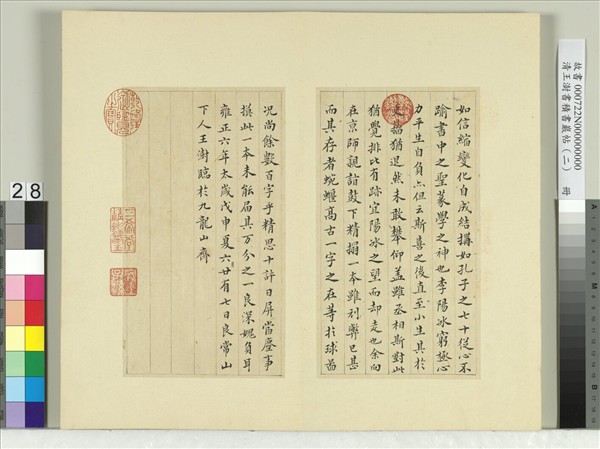 如信縮變化自成結搆如孔子之七十從心不
踰書中之聖篆學之神也李陽冰窮極心
力平生自負亦但云斯喜之後直至小生其於
獵碣猶退然未敢攀仰蓋雖丞相斯對此
猶覺排比有跡宜陽冰之望而却走也余向
在京師親詣鼓下精搨一本雖刓弊已甚
而其存者蜿蟺高古一字之在等於球圖
況尚餘數百字乎精思十許日屏當塵事
摸此一本未能屆其萬分之一良深媿負耳
雍正六年太歲戊申夏六廿有七日良常山
下人王澍臨於九龍山齋
故書 000722N000000000 冊
清王澍書積書巖帖（二）
28